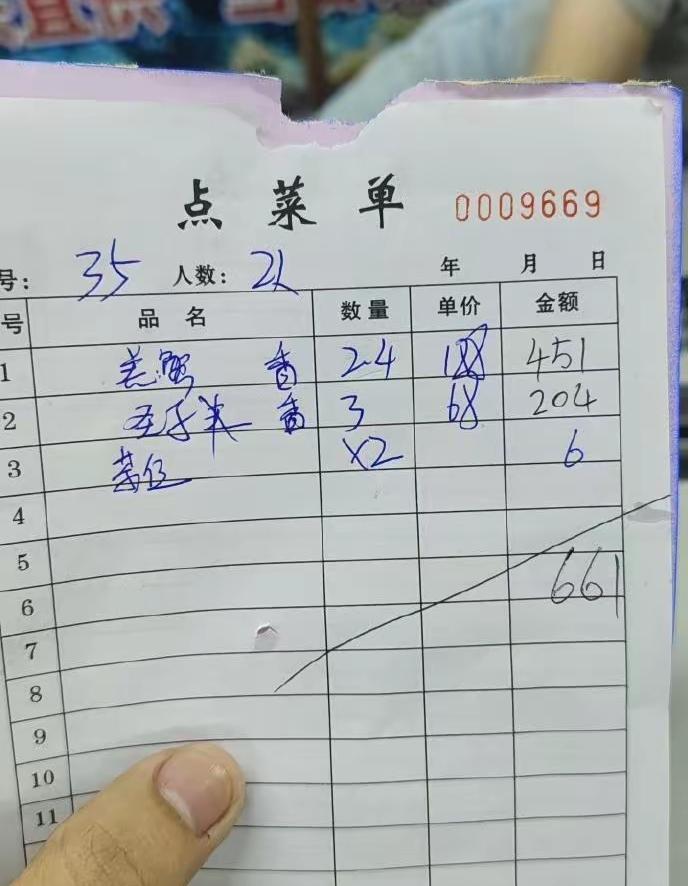 点菜单 0009669
号: 35 人数: 2人
年 月 日
号 品名 数量 单价 金额
1 羔蟹 香 2.4 188 451
2 圣子米 香 3 68 204
3 茶位 ×2 6
4
5
6 661
7
8
9
10
11